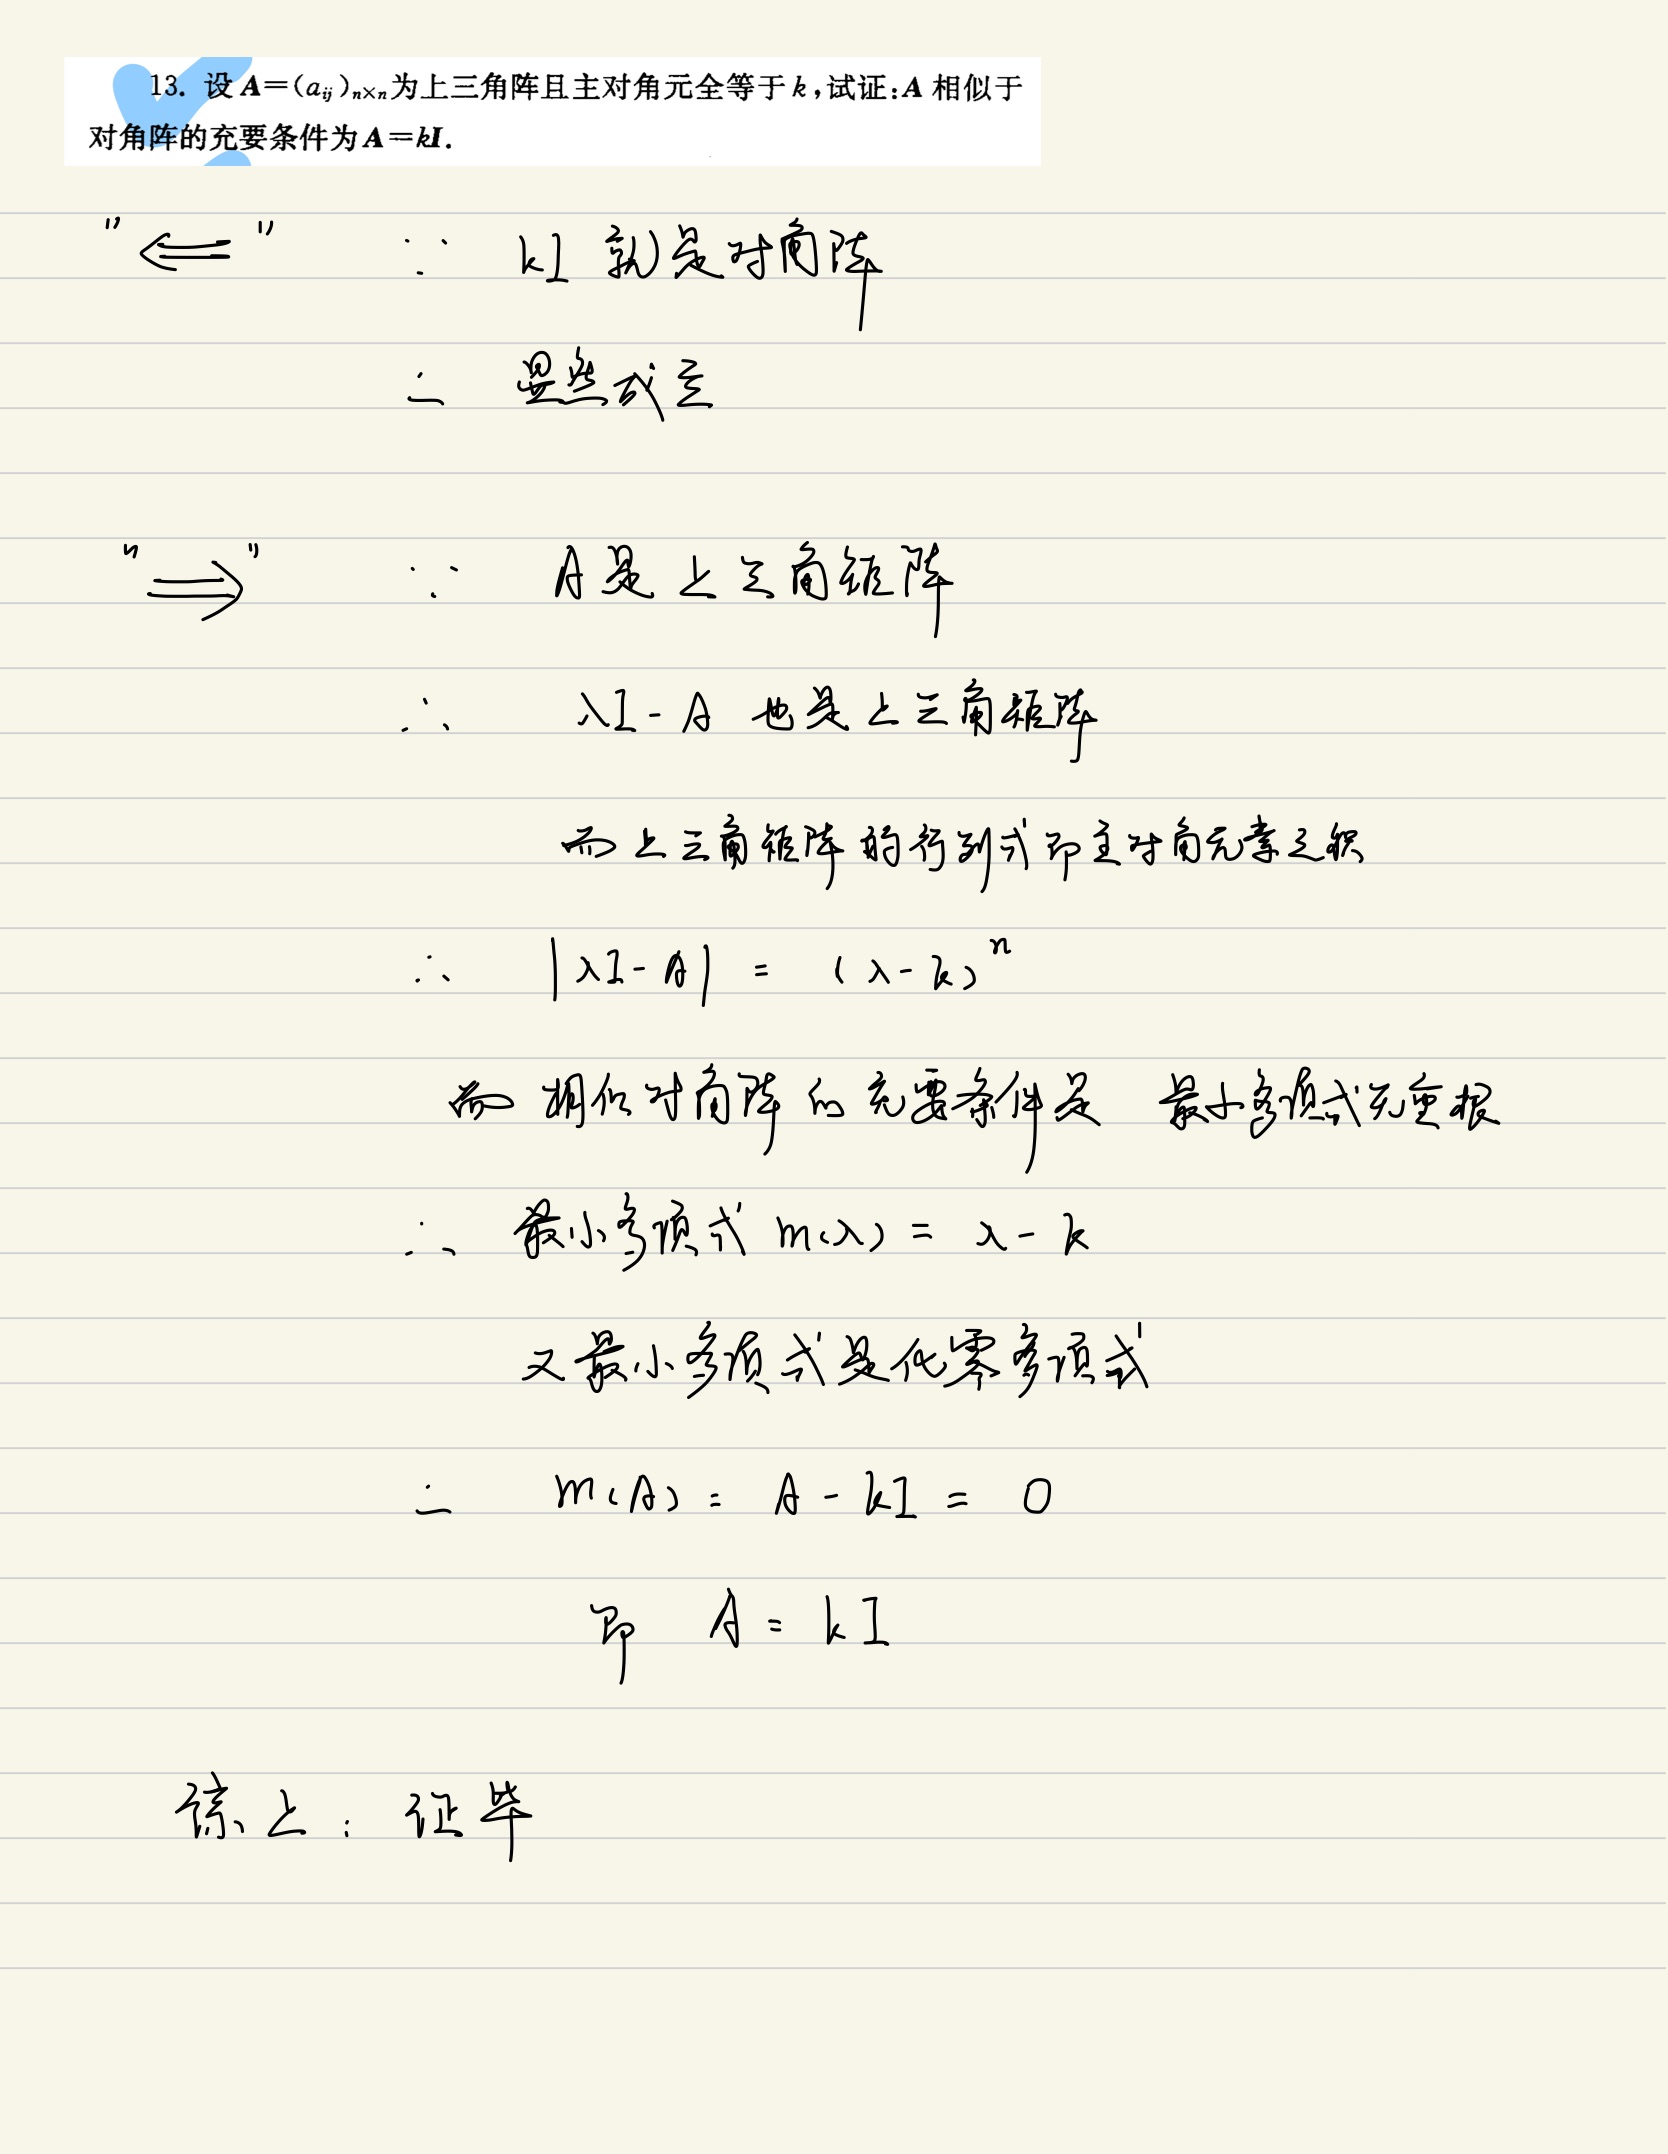 13. 设 A=(aᵢⱼ)ₙ×ₙ为上三角阵且主对角元全等于 k,试证:A 相似于
对角阵的充要条件为 A=kI.
"⟸" ∵ kI 就是对角阵
∴ 显然成立
"⟹" ∵ A是上三角矩阵
∴ λI-A 也是上三角矩阵
而上三角矩阵的行列式即主对角元素之积
∴ |λI-A| = (λ-k)ⁿ
而 相似对角阵的充要条件是 最小多项式无重根
∴ 最小多项式 m(λ) = λ-k
又最小多项式是化零多项式
∴ m(A) = A-kI = 0
即 A = kI
综上: 证毕